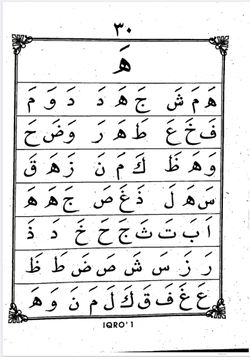 ٣٠
هَ
هَ مَ شَ جَ هَ دَ دَ وَ مَ
فَ خَ عَ طَ هَ رَ وَ ضَ حَ
وَ هَ ظَ كَ مَ نَ زَ هَ قَ
سَ هَ لَ ذَ غَ صَ جَ هَ هَ
اَ بَ تَ ثَ جَ حَ خَ دَ ذَ
رَ زَ سَ شَ صَ ضَ طَ ظَ
عَ غَ فَ قَ كَ لَ مَ نَ وَ هَ
IQRO' 1